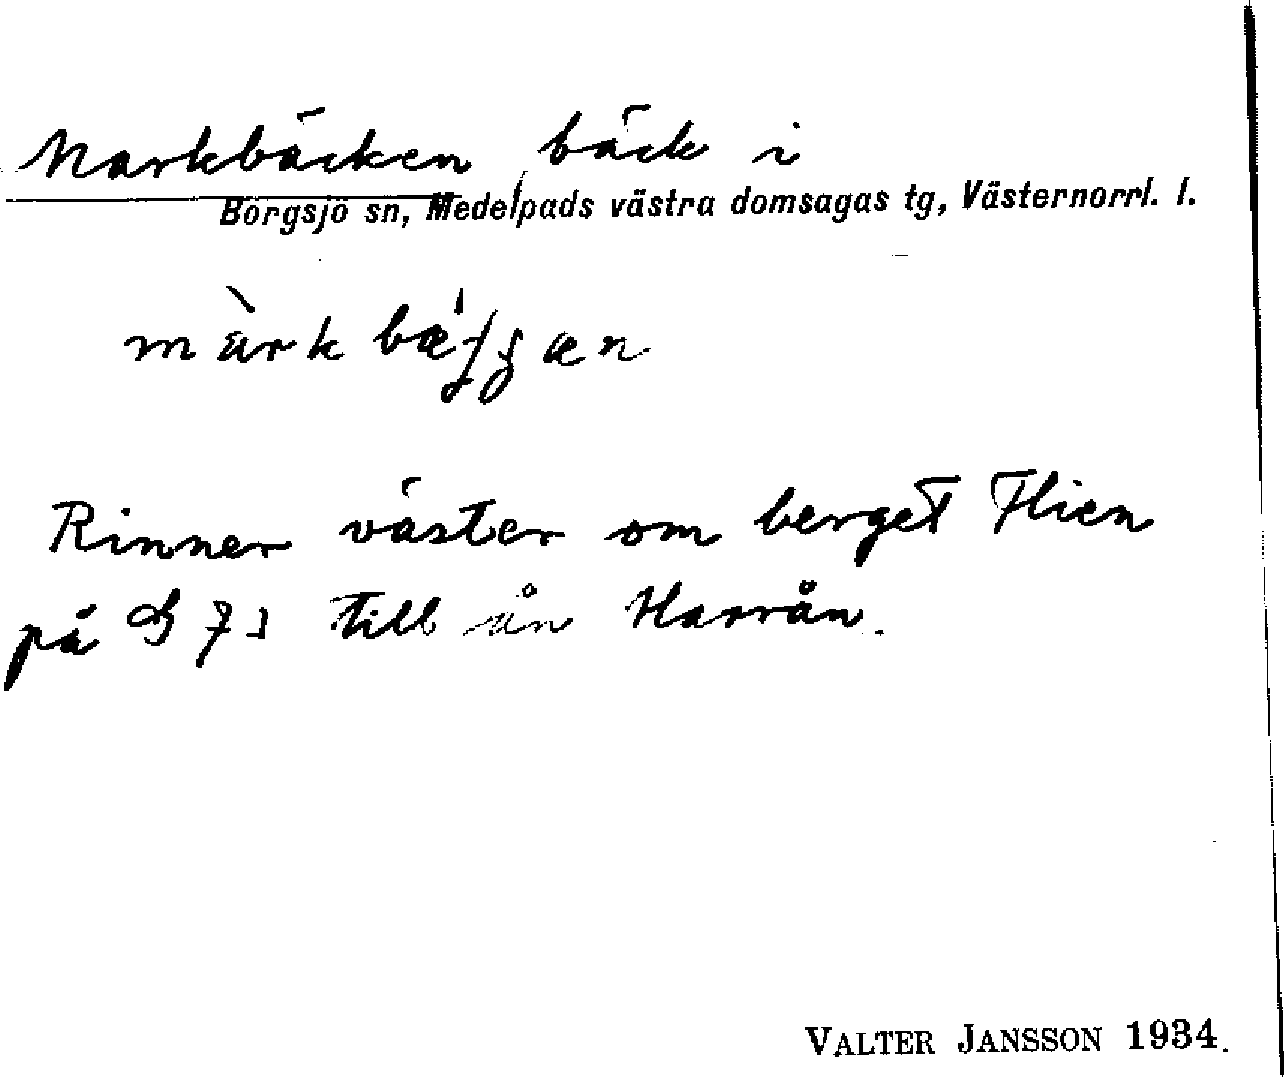 Markbäcken, bäck i
Borgsjö sn, Medelpads västra domsagas tg, Västernorrl. l.
Rinner väster om berget Flien
på till ån Harrån.
VALTER JANSSON 1934.